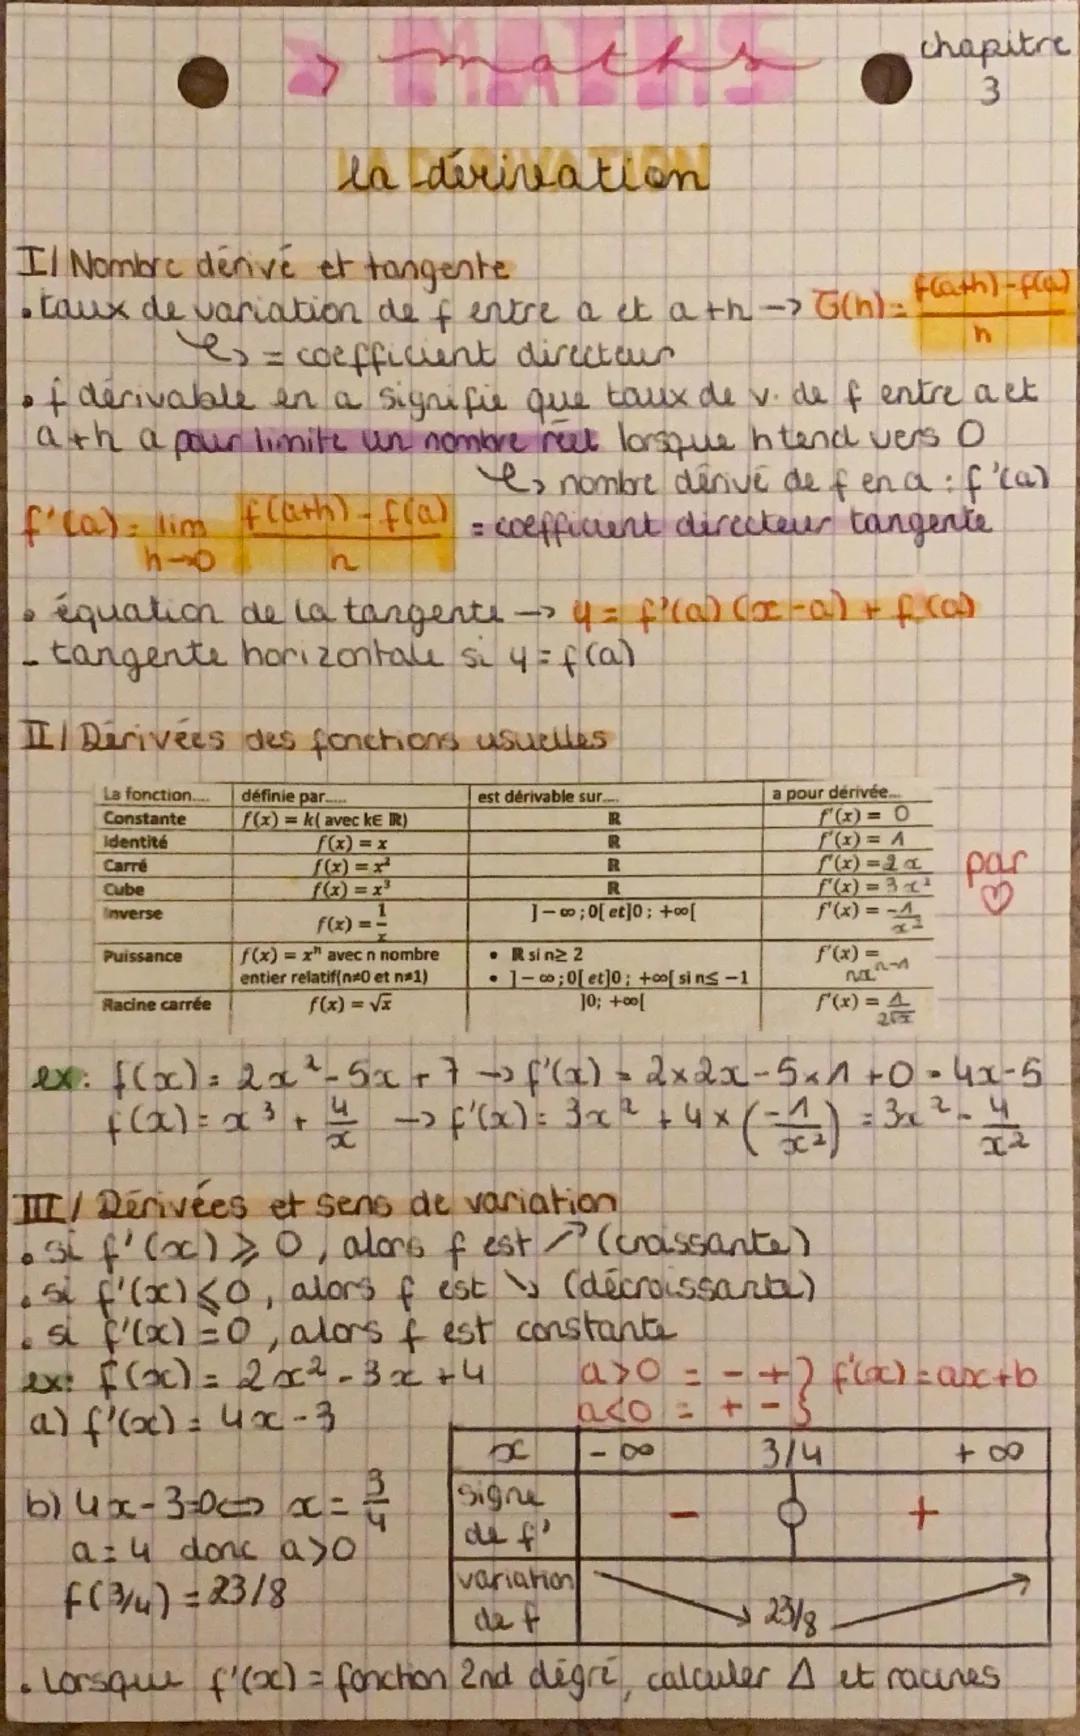 MATHS
→ maths
chapitre 3
la dérivation
I/ Nombre dérivé et tangente
• taux de variation de f entre a et a+h → G(h) = (f(a+h) - f(a))/h
↳ = coefficient directeur
• f dérivable en a signifie que taux de v. de f entre a et
a+h a pour limite un nombre réel lorsque h tend vers 0
↳ nombre dérivé de f en a : f'(a)
f'(a) = lim h→0 (f(a+h) - f(a))/h = coefficient directeur tangente
• équation de la tangente → y = f'(a)(x-a) + f(a)
- tangente horizontale si y = f(a)
II/ Dérivées des fonctions usuelles
La fonction.... définie par..... est dérivable sur.... a pour dérivée...
Constante f(x) = k( avec k∈ ℝ) ℝ f'(x) = 0
Identité f(x) = x ℝ f'(x) = 1
Carré f(x) = x² ℝ f'(x) = 2x
Cube f(x) = x³ ℝ f'(x) = 3x²
Inverse f(x) = 1/x ]-∞;0[ et]0; +∞[ f'(x) = -1/x²
Puissance f(x) = xⁿ avec n nombre • ℝ si n≥ 2 f'(x) =
entier relatif(n≠0 et n≠1) • ]-∞;0[ et]0; +∞[ si n≤ -1 nxⁿ⁻¹
Racine carrée f(x) = √x ]0; +∞[ f'(x) = 1/2√x
par ♡
ex: f(x) = 2x² - 5x + 7 → f'(x) = 2×2x - 5×1 + 0 = 4x-5
f(x) = x³ + 4/x → f'(x) = 3x² + 4 × (-1/x²) = 3x² - 4/x²
III/ Dérivées et sens de variation
• si f'(x) ⩾ 0, alors f est ↗ (croissante)
• si f'(x) ⩽ 0, alors f est ↘ (décroissante)
• si f'(x) = 0, alors f est constante
ex: f(x) = 2x² - 3x + 4
a>0 = - + } f'(x) = ax+b
a<0 = + - }
a) f'(x) = 4x - 3
b) 4x-3=0 ⇔ x = 3/4
a = 4 donc a>0
f(3/4) = 23/8
x -∞ 3/4 +∞
signe de f' - 0 +
variation de f ↘ 23/8 ↗
• Lorsque f'(x) = fonction 2nd dégré, calculer Δ et racines